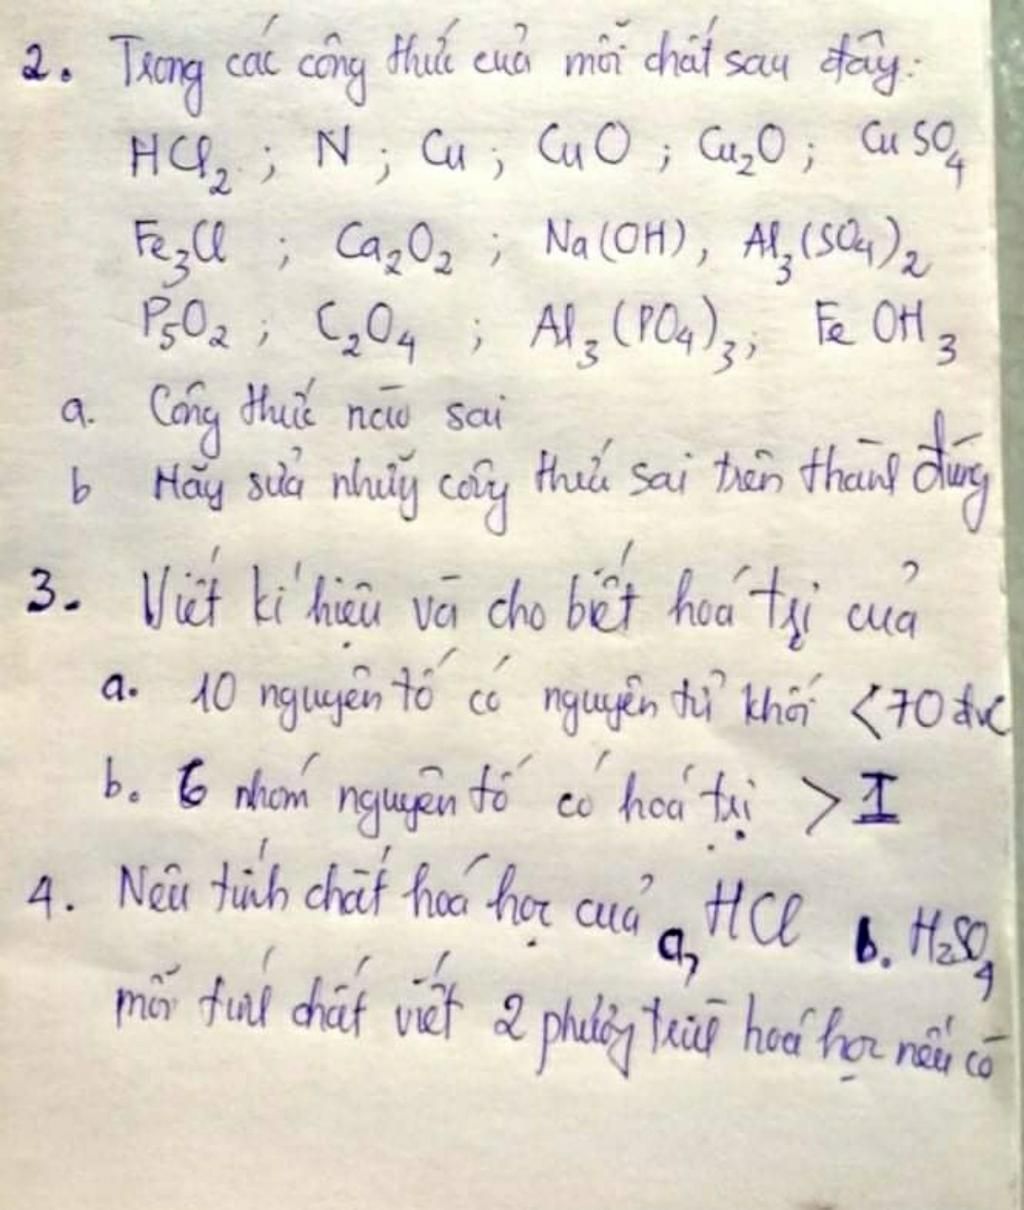 2. Trong các công thức của mỗi chất sau đây:
HCl₂ ; N ; Cu ; CuO ; Cu₂O ; CuSO₄
Fe₃Cl ; Ca₂O₂ ; Na(OH), Al₃(SO₄)₂
P₅O₂ ; C₂O₄ ; Al₃(PO₄)₃; FeOH₃
a. Công thức nào sai
b Hãy sửa những công thức sai trên thành đúng
3. Viết kí hiệu và cho biết hoá trị của
a. 10 nguyên tố có nguyên tử khối <70 đvc
b. 6 nhóm nguyên tố có hoá trị > I
4. Nêu tính chất hoá học của a, HCl b. H₂SO₄
mỗi tính chất viết 2 phương trình hoá học nếu có